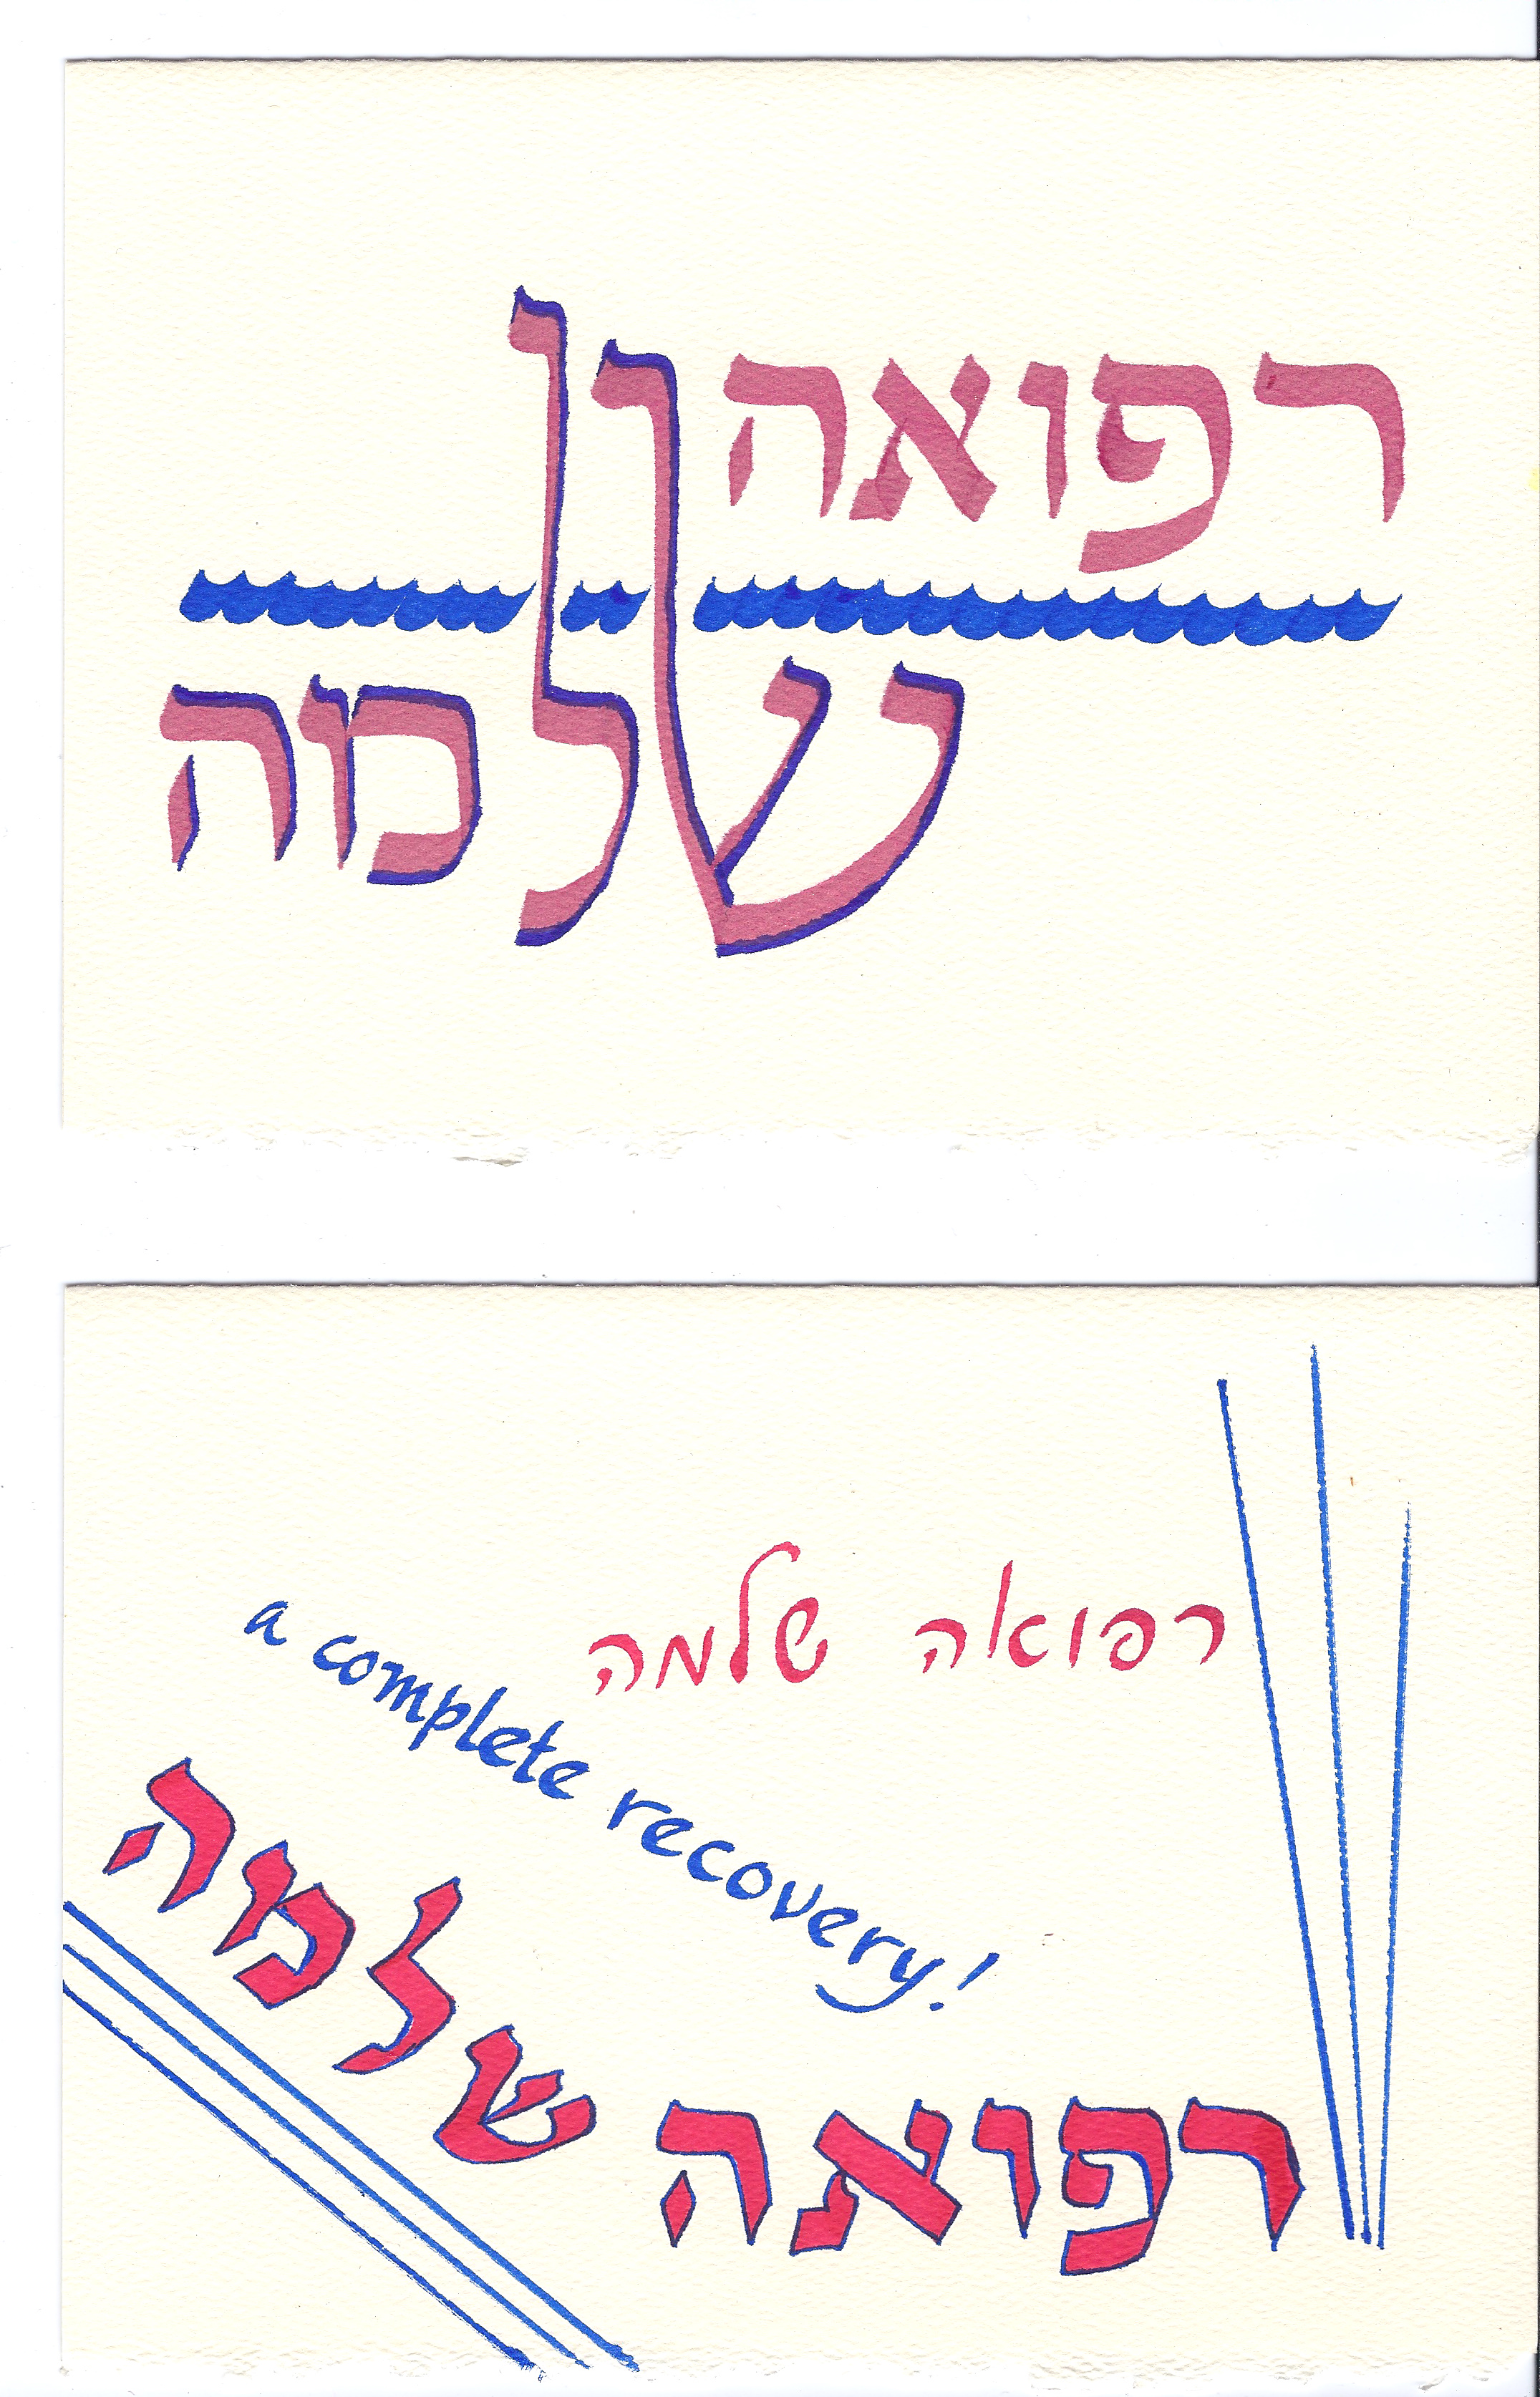 רפואה
שלמה
רפואה שלמה
a complete recovery!
רפואה שלמה